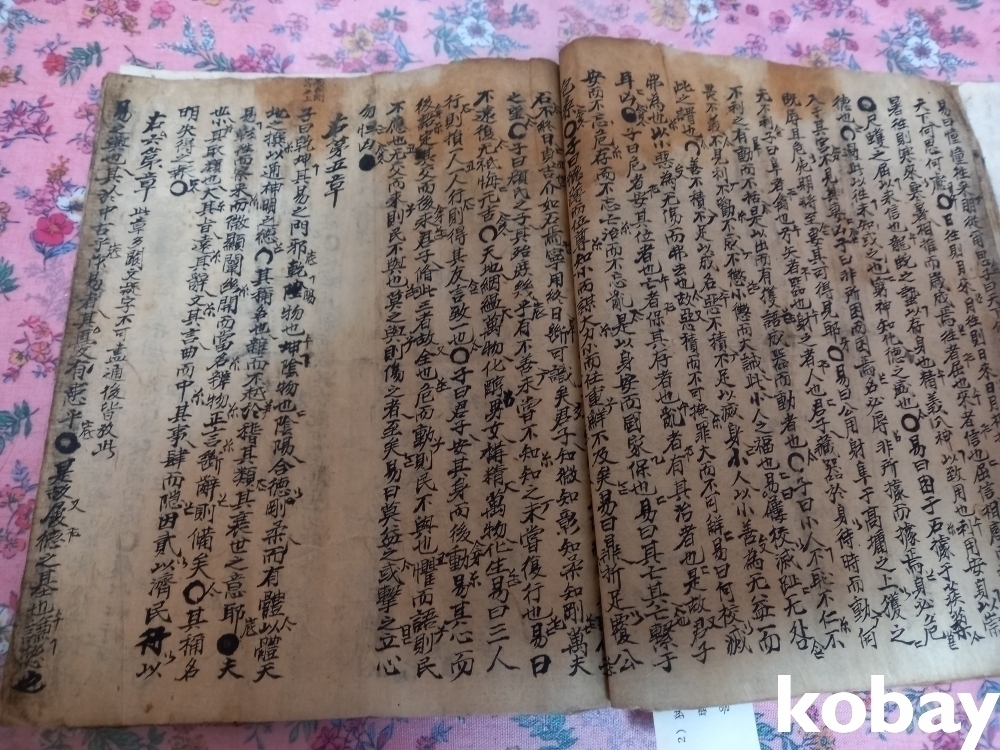 易曰憧憧往來朋從爾思子曰
天下何思何慮○日往則月來月往則日來日月
暑往則寒來寒暑相推而歲成焉往者屈也來者信也屈信相感
尺蠖之屈以求信也龍蛇之蟄以存身也精義入神以致用也利用安身以崇
德也○過此以往未之或知也窮神知化德之盛也○易曰困于石據于蒺藜
入于其宮不見其妻凶子曰非所困而困焉名必辱非所據而據焉身必危
既辱且危死期將至妻其可得見耶○易曰公用射隼于高墉之上獲之
无不利子曰隼者禽也弓矢者器也射之者人也君子藏器於身待時而動何
不利之有動而不括是以出而有獲語成器而動者也○子曰小人不恥不仁不
畏不義不見利不勸不威不懲小懲而大誡此小人之福也易曰屨校滅趾无咎
此之謂也○善不積不足以成名惡不積不足以滅身小人以小善為无益而
弗為也以小惡為无傷而弗去也故惡積而不可掩罪大而不可解易曰何校滅
耳凶○子曰危者安其位者也亡者保其存者也亂者有其治者也是故君子
安而不忘危存而不忘亡治而不忘亂是以身安而國家保也易曰其亡其亡繫于
○子曰德薄而位尊知小而謀大力小而任重鮮不及矣易曰鼎折足覆公
石不終日貞吉介如石焉寧用終日斷可識矣君子知微知彰知柔知剛萬夫
之望○子曰顔氏之子其殆庶幾乎有不善未嘗不知知之未嘗復行也易曰
不遠復无祗悔元吉○天地絪縕萬物化醇男女構精萬物化生易曰三人
行則損一人一人行則得其友言致一也○子曰君子安其身而後動易其心而
後語定其交而後求君子脩此三者故全也危而動則民不與也懼而語則民
不應也无交而求則民不與也莫之與則傷之者至矣易曰莫益之或擊之立心
勿恒凶
右第五章
子曰乾坤其易之門邪乾陽物也坤陰物也陰陽合德而剛柔有體以體天
地之撰以通神明之德○其稱名也雜而不越於稽其類其衰世之意耶 夫
易彰往而察來而微顯闡幽開而當名辨物正言斷辭則備矣○其稱名
也小其取類也大其旨遠其辭文其言曲而中其事肆而隱因貳以濟民行以
明失得之報○
右第六章 此章多闕文疑字不可盡通後皆放此
易之興也其於中古乎作易者其有憂患乎 是故履德之基也謙德之柄也
kobay